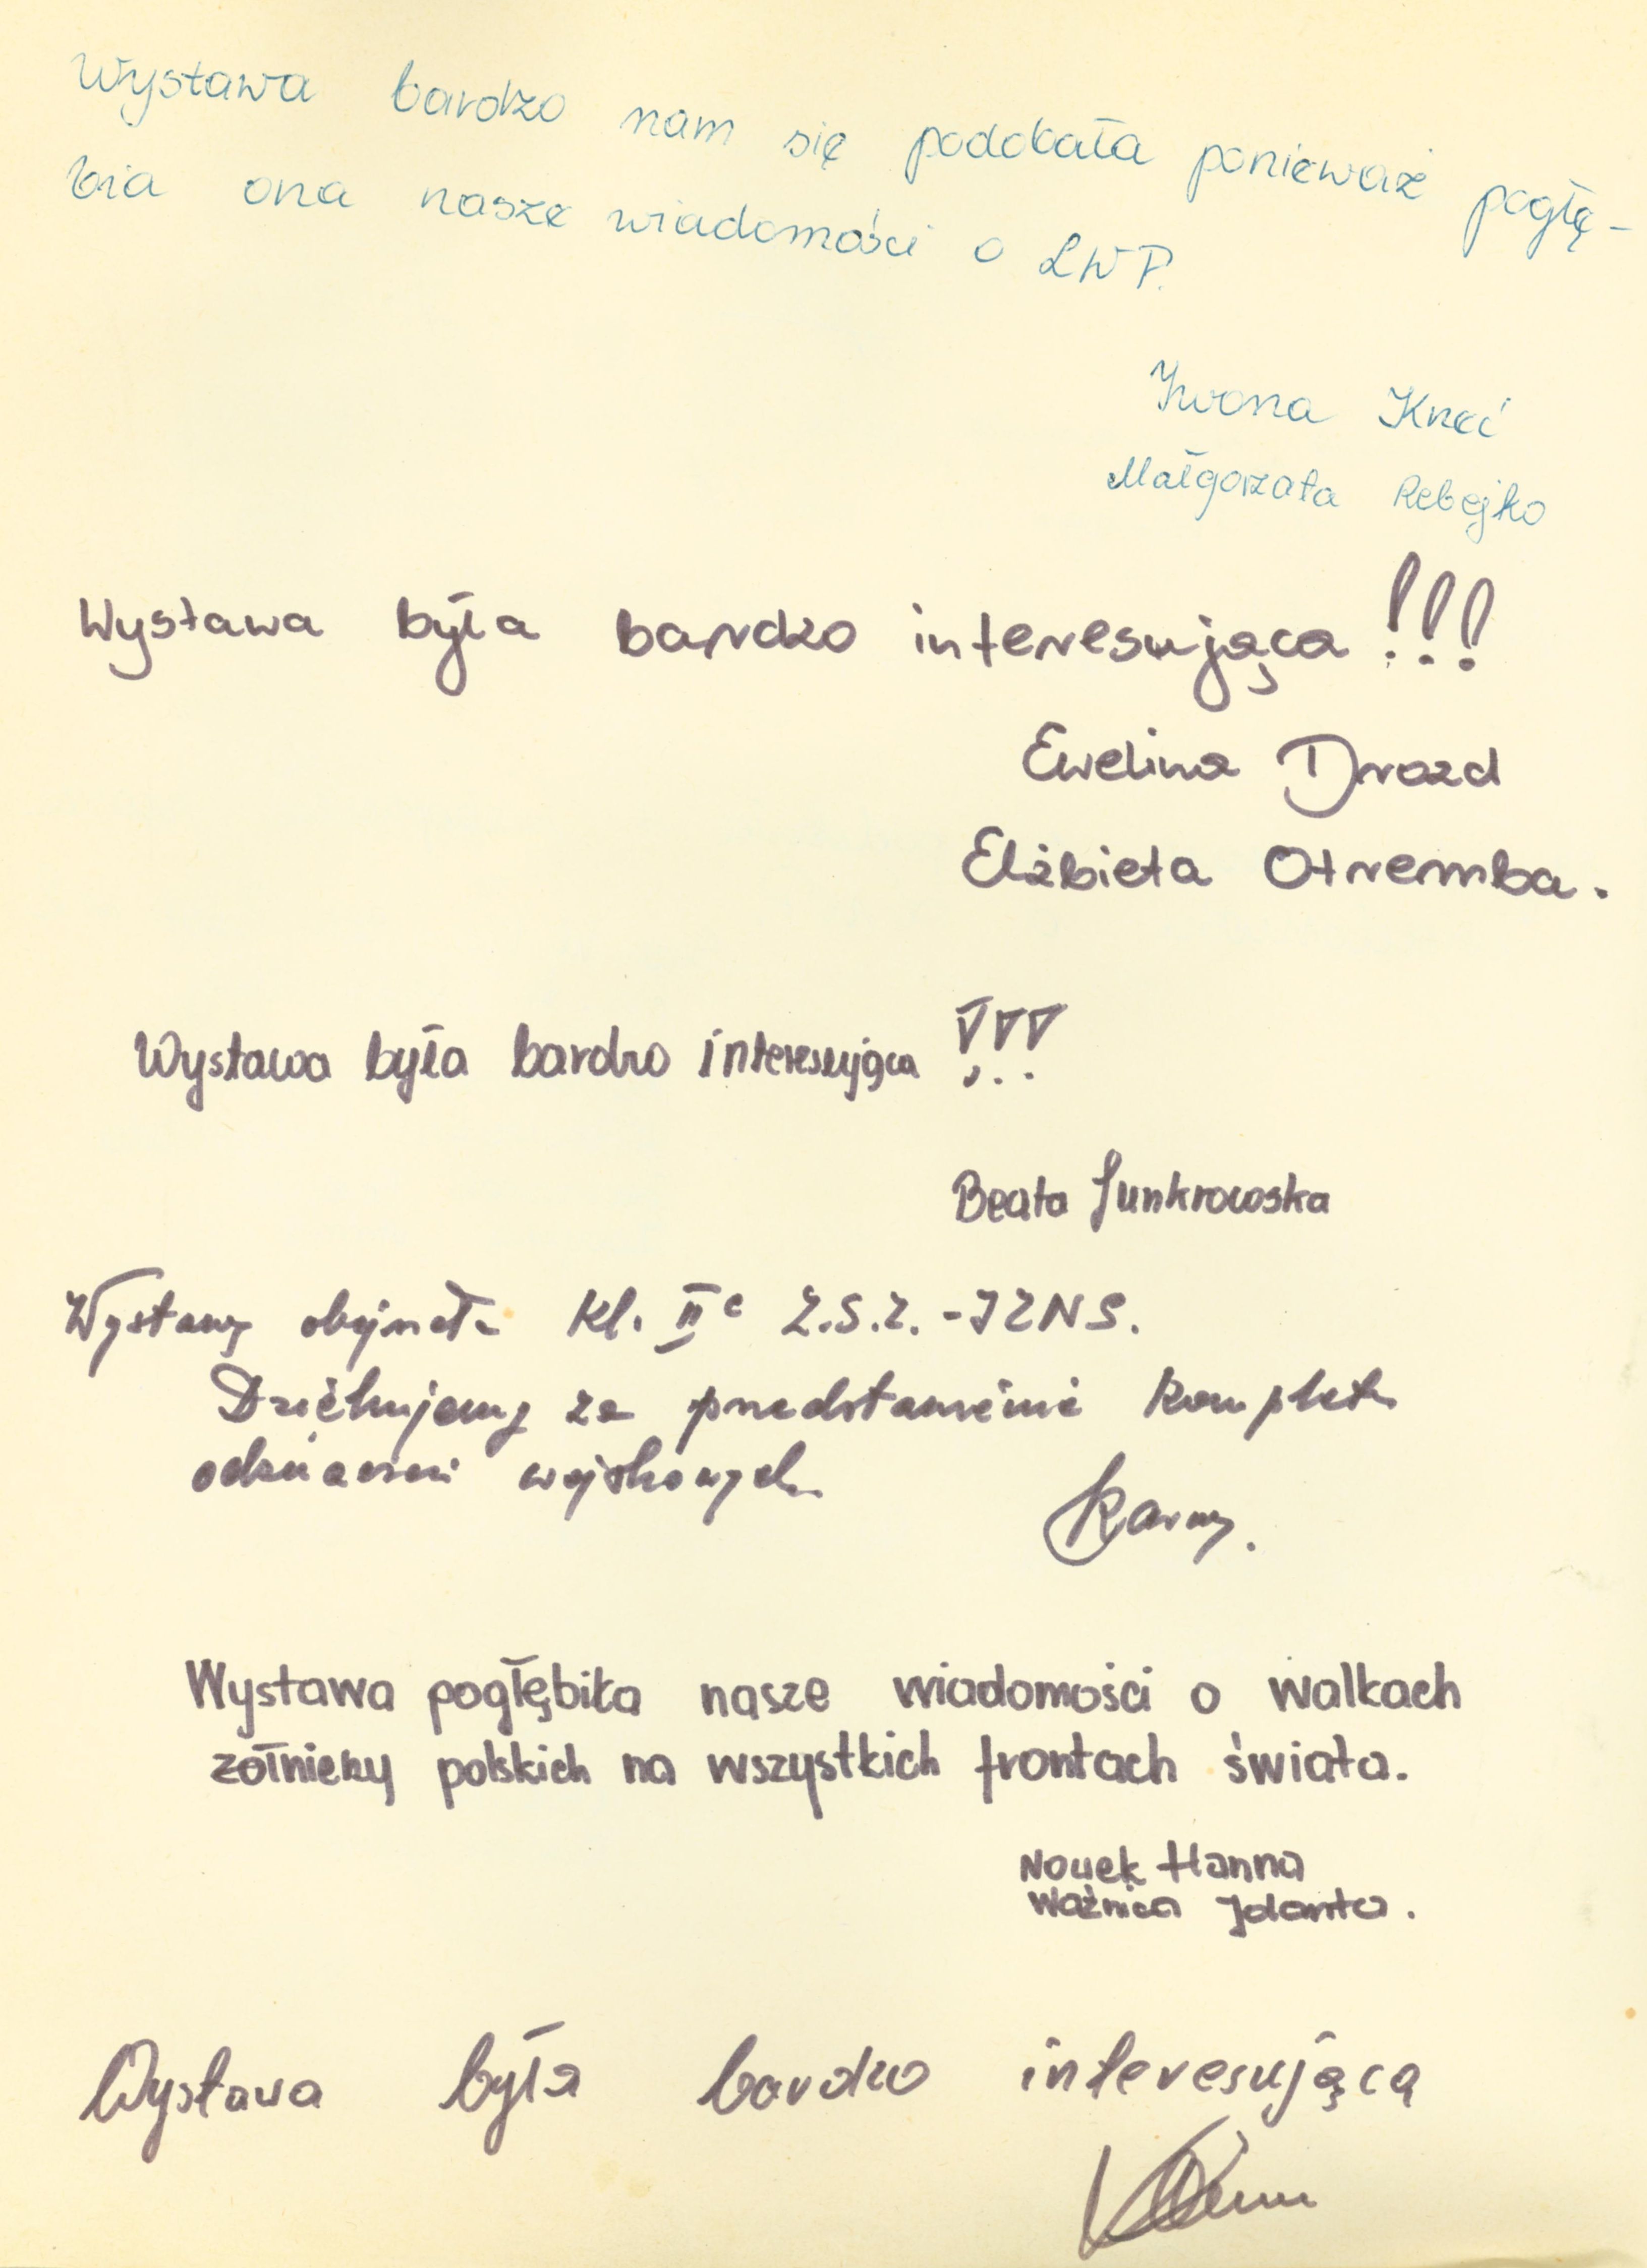 Wystawa bardzo nam się podobała ponieważ pogłę-
bia ona nasze wiadomości o LWP.
Iwona Kneć
Małgorzata Rebejko
Wystawa była bardzo interesująca!!!
Ewelina Drozd
Elżbieta Otremba.
Wystawa była bardzo interesująca !!!
Beata Junkrowska
Wystawę obejrzała Kl. IIc Z.S.Z. - IZNS.
Dziękujemy za przedstawienie kompletu
odznaczeń wojskowych
Wystawa pogłębiła nasze wiadomości o walkach
żołnierzy polskich na wszystkich frontach świata.
Nouek Hanna
Waźnica Jolanta.
Wystawa była bardzo interesującą